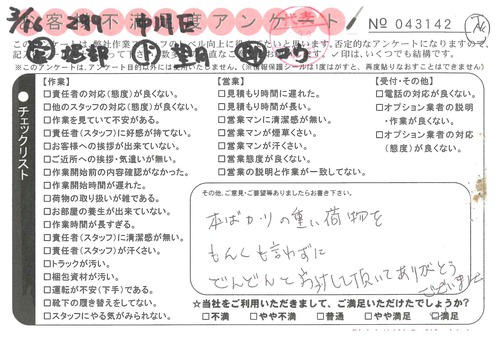 3/16 299 中川区
お客様不満足度アンケート
No 043142
㊞は、いくつでも結構です。
※このアンケートは、アンケート目的以外には使用いたしません。(※情報保護シールは1度はがすと、再度貼りなおすことはできません)
チェックリスト
【作業】
□責任者の対応(態度)が良くない。
□他のスタッフの対応(態度)が良くない。
□作業を見ていて不安がある。
□責任者(スタッフ)に好感が持てない。
□お客様への挨拶が出来ていない。
□ご近所への挨拶・気遣いが無い。
□作業開始前の内容確認がなかった。
□作業開始時間が遅れた。
□荷物の取り扱いが雑である。
□お部屋の養生が出来ていない。
□作業時間が長すぎる。
□責任者(スタッフ)に清潔感が無い。
□責任者(スタッフ)が汗くさい。
□トラックが汚い。
□梱包資材が汚い。
□運転が不安(下手)である。
□靴下の履き替えをしてない。
□スタッフにやる気がみられない。
【営業】
□見積もり時間に遅れた。
□見積もり時間が長い。
□営業マンに清潔感が無い。
□営業マンが煙草くさい。
□営業マンが汗くさい。
□営業態度が良くない。
□営業の説明と作業が一致してない。
【受付・その他】
□電話の対応が良くない。
□オプション業者の説明
・作業が良くない。
□オプション業者の対応
(態度)が良くない。
その他、ご意見・ご要望等ありましたらお書き下さい。
本ばかりの重い荷物を
もんくも言わずに
どんどんと対応して頂いてありがとう
ございました
☆当社をご利用いただきまして、ご満足いただけたでしょうか?
□不満 □やや不満 □普通 □やや満足 ☑満足